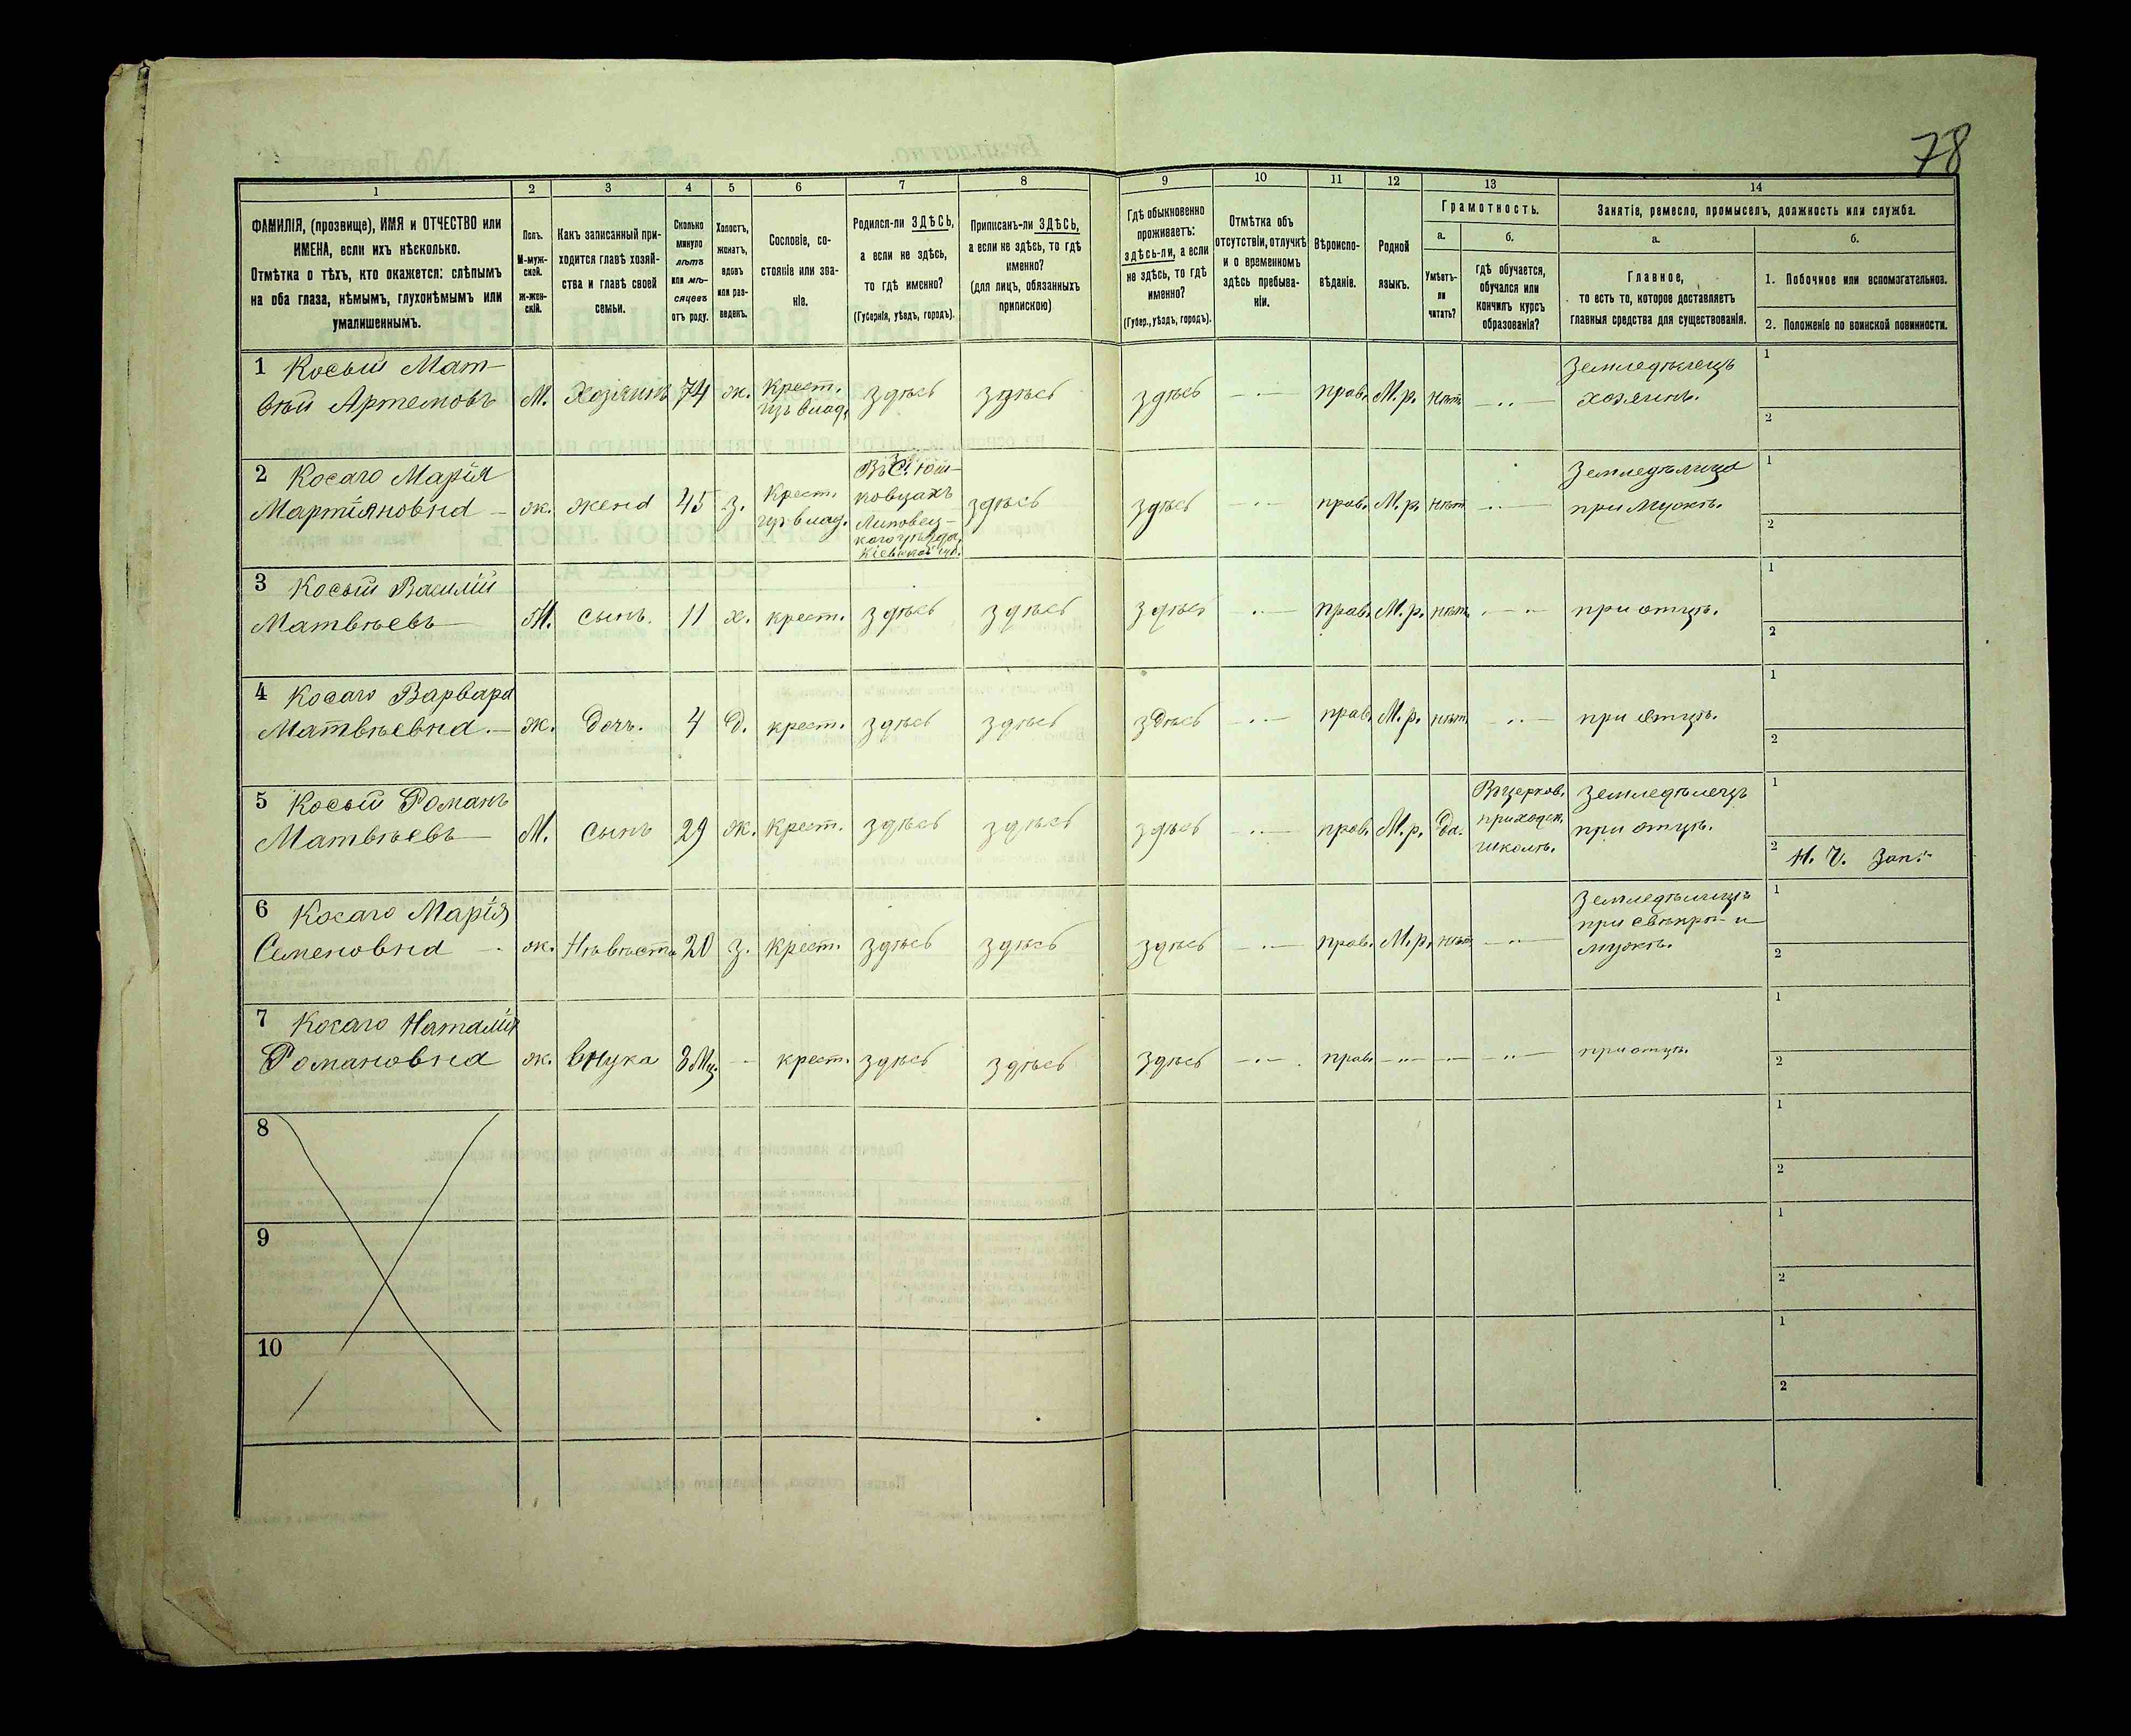 78
1 2 3 4 5 6 7 8 9 10 11 12 13 14
ФАМИЛІЯ, (прозвище), ИМЯ и ОТЧЕСТВО или
ИМЕНА, если ихъ нѣсколько.
Отмѣтка о тѣхъ, кто окажется: слѣпымъ
на оба глаза, нѣмымъ, глухонѣмымъ или
умалишеннымъ.
Полъ.
М-муж-
ской.
Ж-жен-
скій.
Какъ записанный при-
ходится главѣ хозяй-
ства и главѣ своей
семьи.
Сколько
минуло
лѣтъ
или мѣ-
сяцевъ
отъ роду.
Холостъ,
женатъ,
вдовъ
или раз-
веденъ.
Сословіе, со-
стояніе или зва-
ніе.
Родился-ли ЗДѢСЬ,
а если не здѣсь,
то гдѣ именно?
(Губернія, уѣздъ, городъ).
Приписанъ-ли ЗДѢСЬ,
а если не здѣсь, то гдѣ
именно?
(для лицъ, обязанныхъ
припискою)
Гдѣ обыкновенно
проживаетъ:
здѣсь-ли, а если
не здѣсь, то гдѣ
именно?
(Губер., уѣздъ, городъ).
Отмѣтка объ
отсутствіи, отлучкѣ
и о временномъ
здѣсь пребыва-
ніи.
Вѣроиспо-
вѣданіе.
Родной
языкъ.
Грамотность.
а.
Умѣетъ-
ли
читать?
б.
гдѣ обучается,
обучался или
кончилъ курсъ
образованія?
Занятіе, ремесло, промыселъ, должность или служба.
а.
Главное,
то есть то, которое доставляетъ
главныя средства для существованія.
б.
1. Побочное или вспомогательное.
2. Положеніе по воинской повинности.
1 Косый Мат-
вѣй Артемовъ М. Хозяинъ 74 ж. Крест. изъ влад. здѣсь здѣсь здѣсь прав. М.р. нѣтъ Земледѣлецъ
хозяинъ.
1
2
2 Косаго Марія
Мартіяновна ж. жена 45 з. Крест. изъ влад. Въ С. Юш-
ковцахъ
Липовец-
каго уѣзда,
Кіевской губ.
здѣсь здѣсь прав. М.р. нѣтъ Земледѣлица
при мужѣ.
1
2
3 Косый Василій
Матвѣевъ М. сынъ. 11 х. крест. здѣсь здѣсь здѣсь прав. М.р. нѣтъ при отцѣ.
1
2
4 Косаго Варвара
Матвѣевна. ж. дочь. 4 д. крест. здѣсь здѣсь здѣсь прав. М.р. нѣтъ при отцѣ.
1
2
5 Косый Романъ
Матвѣевъ М. сынъ 29 ж. крест. здѣсь здѣсь здѣсь прав. М.р. да. Въ церков.
приходск.
школѣ.
Земледѣлецъ
при отцѣ.
1
2
6 Косаго Марія
Семеновна ж. Невѣста 20 з. крест. здѣсь здѣсь здѣсь прав. М.р. нѣтъ
при свѣкрѣ и
мужѣ.
1
2
7 Косаго Наталія
Романовна ж. внука 8 Мц. крест. здѣсь здѣсь здѣсь прав. при отцѣ.
1
2
8
1
2
9
1
2
10
1
2